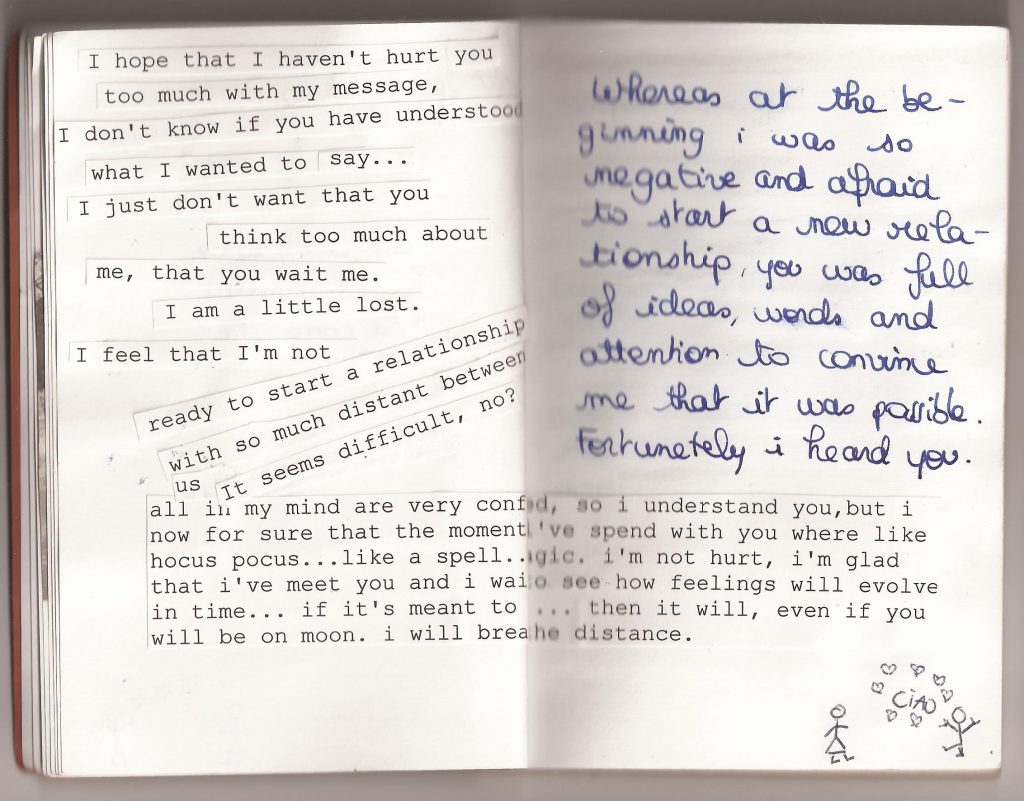 I hope that I haven't hurt you
too much with my message,
I don't know if you have understood
what I wanted to say...
I just don't want that you
think too much about
me, that you wait me.
I am a little lost.
I feel that I'm not
ready to start a relationship
with so much distant between
us
It seems difficult, no?
all in my mind are very conf d, so i understand you,but i
now for sure that the moment i've spend with you where like
hocus pocus...like a spell.. gic. i'm not hurt, i'm glad
that i've meet you and i wai o see how feelings will evolve
in time... if it's meant to ... then it will, even if you
will be on moon. i will brea he distance.
Whereas at the be-
ginning i was so
negative and afraid
to start a new rela-
tionship, you was full
of ideas, words and
attention to convince
me that it was possible.
Fortunetely i heard you.
CiAO